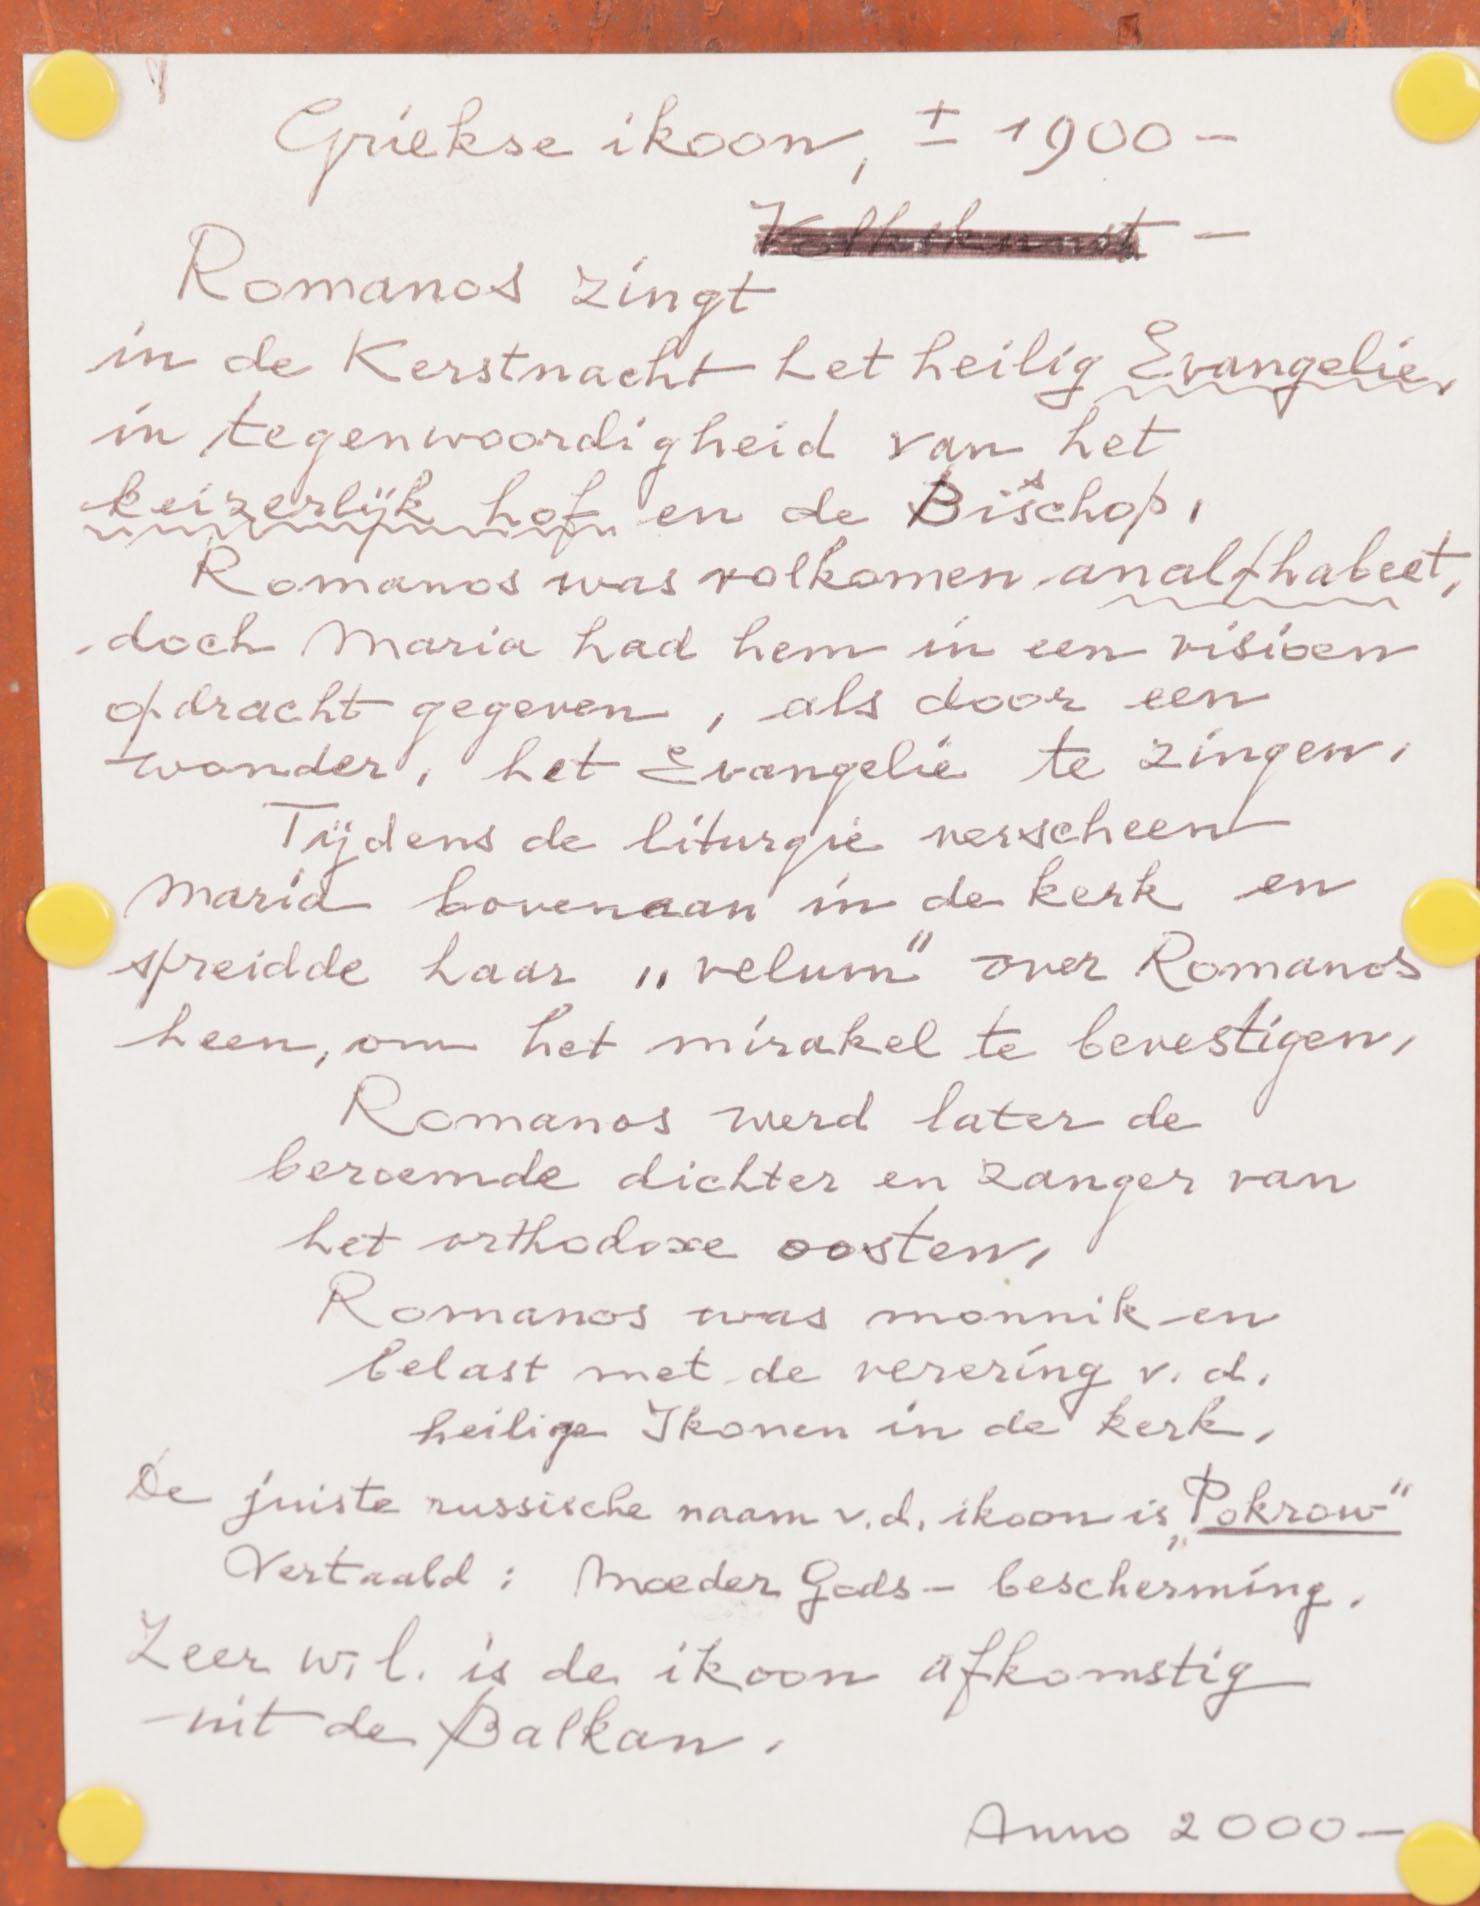 Griekse ikoon, ± 1900 –
Volkskunst –
Romanos zingt
in de Kerstnacht het heilig Evangelie,
in tegenwoordigheid van het
keizerlijk hof en de Bisschop.
Romanos was volkomen analfhabeet,
doch Maria had hem in een visioen
opdracht gegeven, als door een
wonder, het Evangelie te zingen.
Tijdens de liturgie verscheen
Maria bovenaan in de kerk en
spreidde haar „velum" over Romanos
heen, om het mirakel te bevestigen.
Romanos werd later de
beroemde dichter en zanger van
het orthodoxe oosten.
Romanos was monnik en
belast met de verering v.d.
heilige Ikonen in de kerk.
De juiste russische naam v.d. ikoon is „Pokrow"
Vertaald: Moeder Gods – bescherming.
Zeer w.l. is de ikoon afkomstig
uit de Balkan.
Anno 2000 –